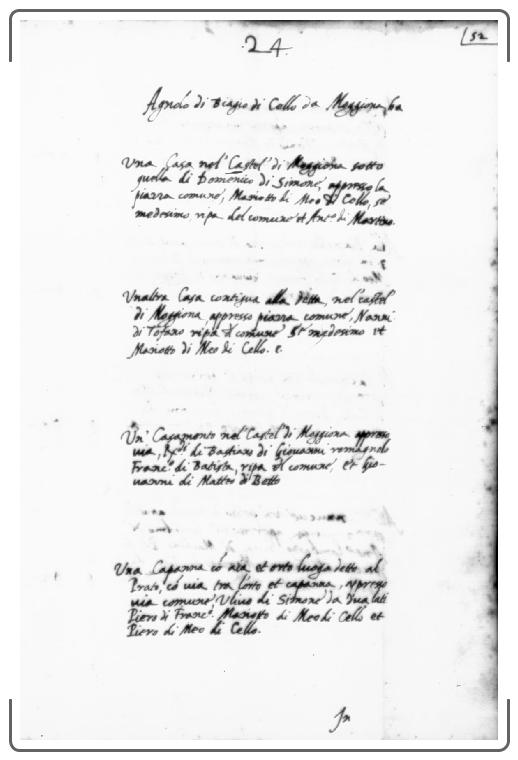 52
24
Agnolo di Biagio di Cello da Moggiona ha
Una Casa nel Castel di Moggiona sotto
quella di Domenico di Simone, appresso la
piazza comune, Mariotto di Meo di Cello, se
medesimo, ripa del comune et Ant.º di Martino.
Unaltra Casa contigua alla detta, nel castel
di Moggiona appresso piazza comune, Nanni
di Tofano ripa d comune Se medesimo et
Mariotto di Meo di Cello. e.
Un' Casamento nel Castel di Moggiona appresso
via, di Bastiano di Giovanni romagnolo
Franc.º di Batista, ripa d comune, et Gio-
vanni di Matteo di Betto
Una Capanna có aia et orto luogo detto al
Prato, có via tra lorto et capanna, appresso
via comune, Ulivo di Simone da dua lati
Piero di Franc.º Mariotto di Meo di Cello et
Piero di Meo di Cello.
In